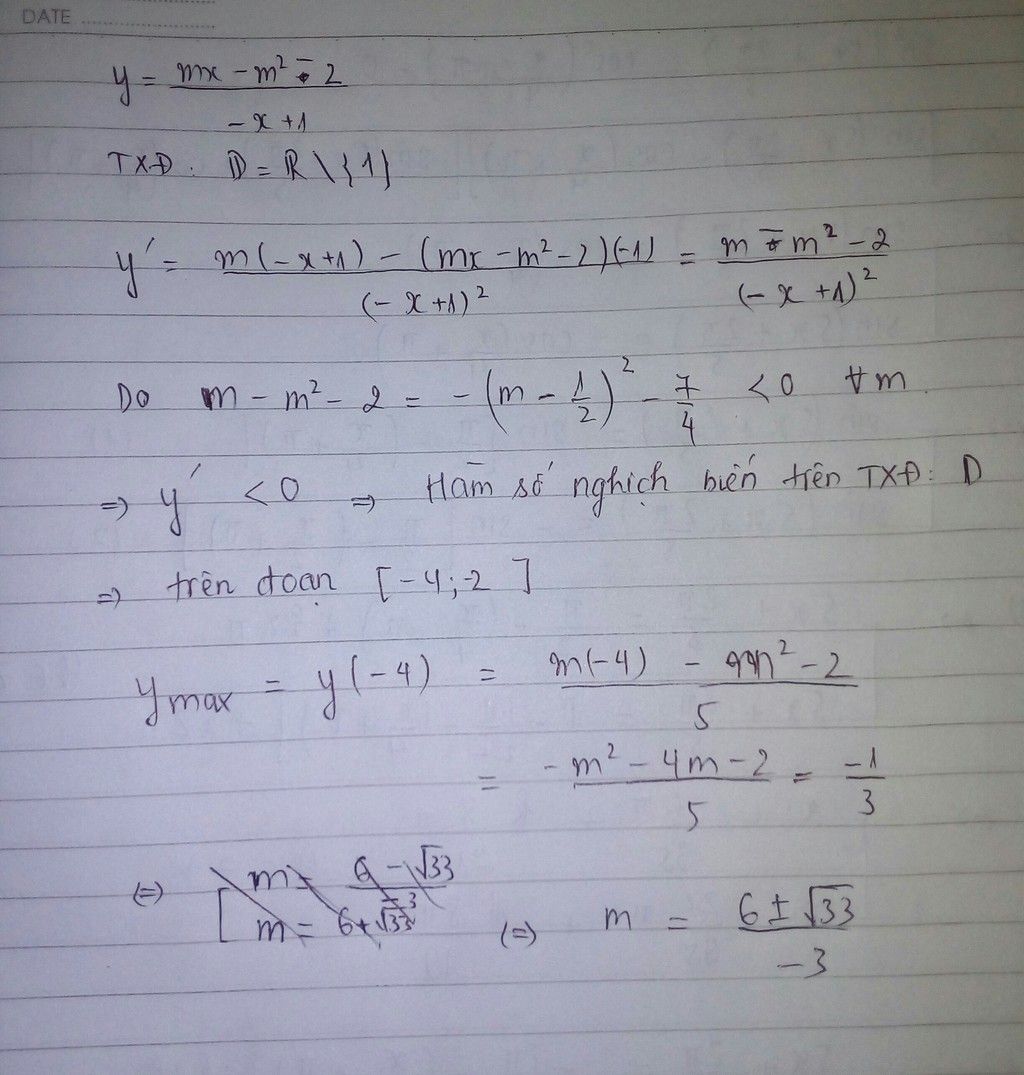 DATE
y = (mx - m² - 2) / (-x + 1)
TXĐ: D = R \ {1}
y' = (m(-x+1) - (mx - m² - 2)(-1)) / (-x+1)² = (m - m² - 2) / (-x+1)²
Do m - m² - 2 = -(m - 1/2)² - 7/4 < 0 ∀m.
⇒ y' < 0 ⇒ Hàm số nghịch biến trên TXĐ: D
⇒ trên đoạn [-4; -2]
ymax = y(-4) = (m(-4) - m² - 2) / 5
= (-m² - 4m - 2) / 5 = -1/3
(=) m = (6 ± √33) / -3